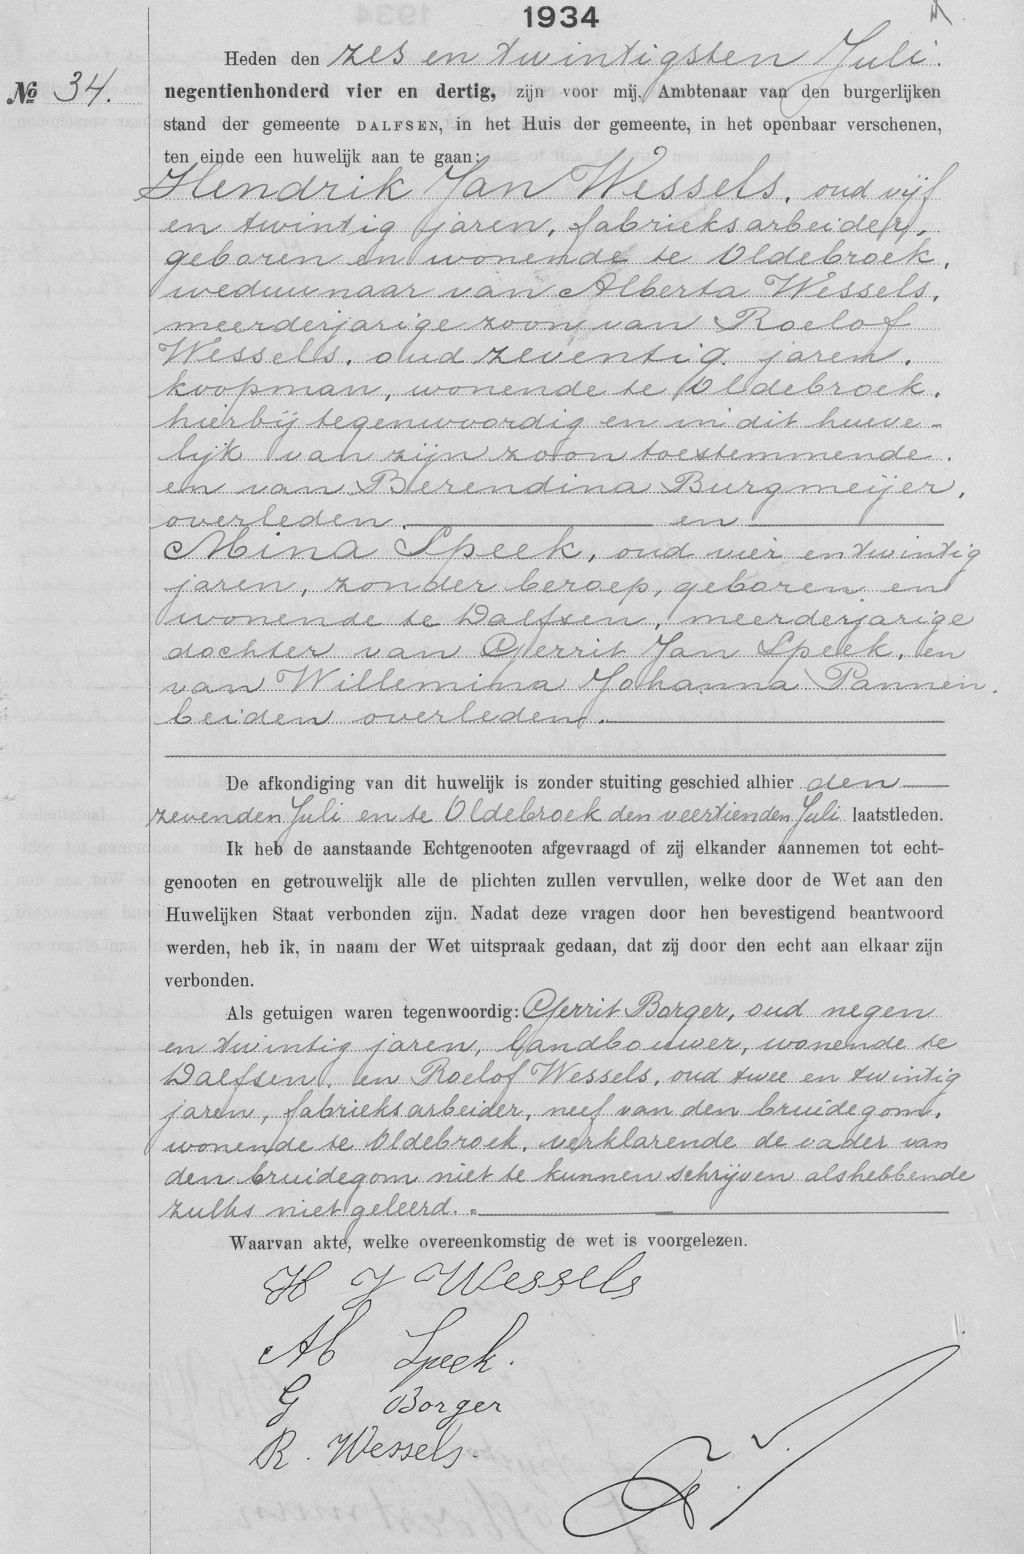 1934
Heden den zes en twintigsten Juli.
№ 34.
negentienhonderd vier en dertig, zijn voor mij, Ambtenaar van den burgerlijken
stand der gemeente DALFSEN, in het Huis der gemeente, in het openbaar verschenen,
ten einde een huwelijk aan te gaan:
Hendrik Jan Wessels, oud vijf
en twintig jaren, fabrieksarbeider,
geboren en wonende te Oldebroek,
weduwnaar van Alberta Wessels,
meerderjarige zoon van Roelof
Wessels, oud zeventig jaren,
koopman, wonende te Oldebroek,
hierbij tegenwoordig en in dit huwe-
lijk van zijn zoon toestemmende,
en van Berendina Burgmeijer,
overleden. en
Mina Speek, oud vier en twintig
jaren, zonder beroep, geboren en
wonende te Dalfsen, meerderjarige
dochter van Gerrit Jan Speek, en
van Willemina Johanna Pannen,
beiden overleden.
De afkondiging van dit huwelijk is zonder stuiting geschied alhier den
zevenden Juli en te Oldebroek den veertienden Juli laatstleden.
Ik heb de aanstaande Echtgenooten afgevraagd of zij elkander aannemen tot echt-
genooten en getrouwelijk alle de plichten zullen vervullen, welke door de Wet aan den
Huwelijken Staat verbonden zijn. Nadat deze vragen door hen bevestigend beantwoord
werden, heb ik, in naam der Wet uitspraak gedaan, dat zij door den echt aan elkaar zijn
verbonden.
Als getuigen waren tegenwoordig: Gerrit Borger, oud negen
en twintig jaren, landbouwer, wonende te
Dalfsen, en Roelof Wessels, oud twee en twintig
jaren, fabrieksarbeider, neef van den bruidegom,
wonende te Oldebroek, verklarende de vader van
den bruidegom niet te kunnen schrijven als hebbende
zulks niet geleerd.
Waarvan akte, welke overeenkomstig de wet is voorgelezen.
H J Wessels
M Speek.
G Borger
R. Wessels.